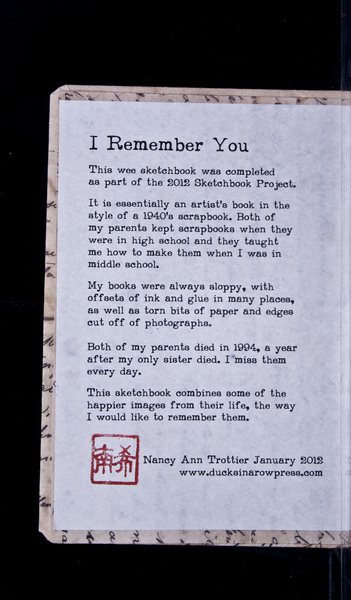 I Remember You
This wee sketchbook was completed
as part of the 2012 Sketchbook Project.
It is essentially an artist's book in the
style of a 1940's scrapbook. Both of
my parents kept scrapbooks when they
were in high school and they taught
me how to make them when I was in
middle school.
My books were always sloppy, with
offsets of ink and glue in many places,
as well as torn bits of paper and edges
cut off of photographs.
Both of my parents died in 1994, a year
after my only sister died. I miss them
every day.
This sketchbook combines some of the
happier images from their life, the way
I would like to remember them.
南希
Nancy Ann Trottier January 2012
www.ducksinarowpress.com